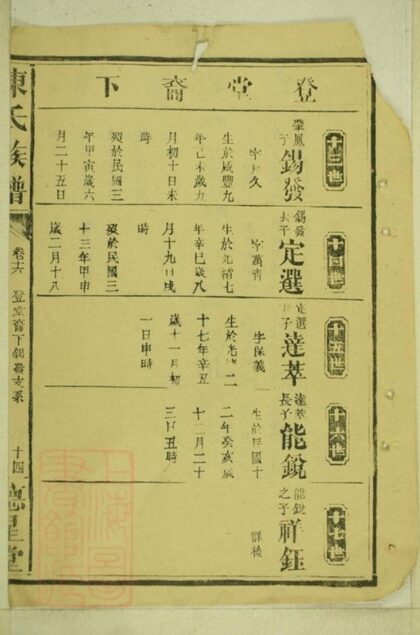 登堂裔下
十三世
肇鳳
子
錫發
久
生於咸豐九
年己未歲九
月初十日未
時
歿於民國三
年甲寅歲六
月二十五日
十四世
錫發
長子
定選
字萬青
生於光緒七
年辛巳歲八
月十九日戌
時
歿於民國三
十三年甲申
歲二月十八
十五世
定選
子
達萃
字保義
生於光緒二
十七年辛丑
歲十一月初
一日申時
十六世
達萃
長子
能銳
生於民國十
二年癸亥歲
十二月二十
三日丑時
十七世
能銳
之子
祥鈺
詳後
陳氏族譜
卷十六
登堂裔下錫發支系
十四
德星堂